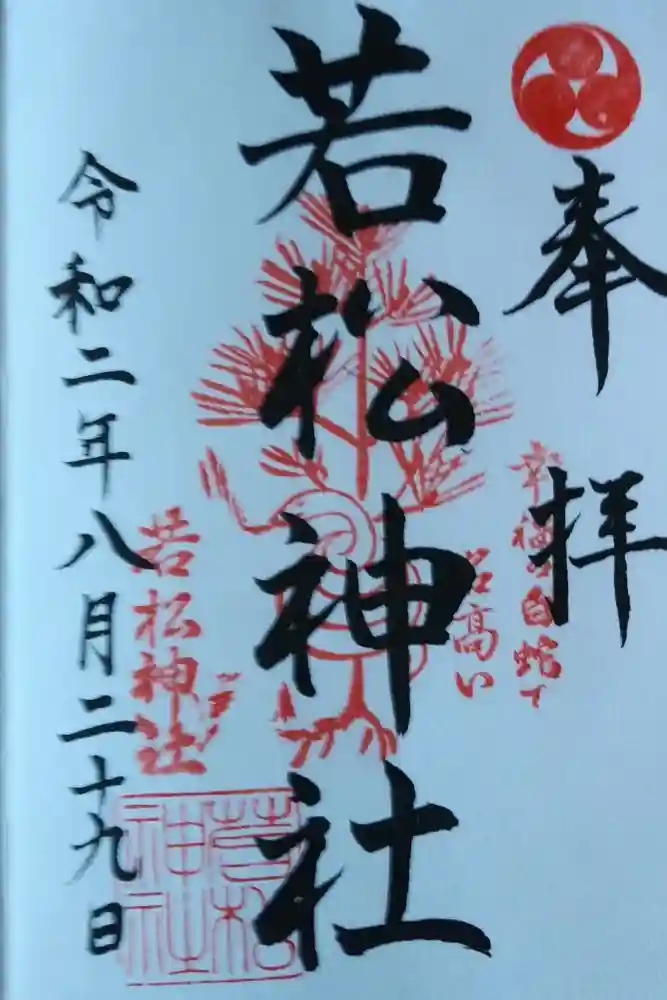 奉拝
幸福の白蛇で
名高い
若松神社
若松神社
若松
神社
令和二年八月二十九日